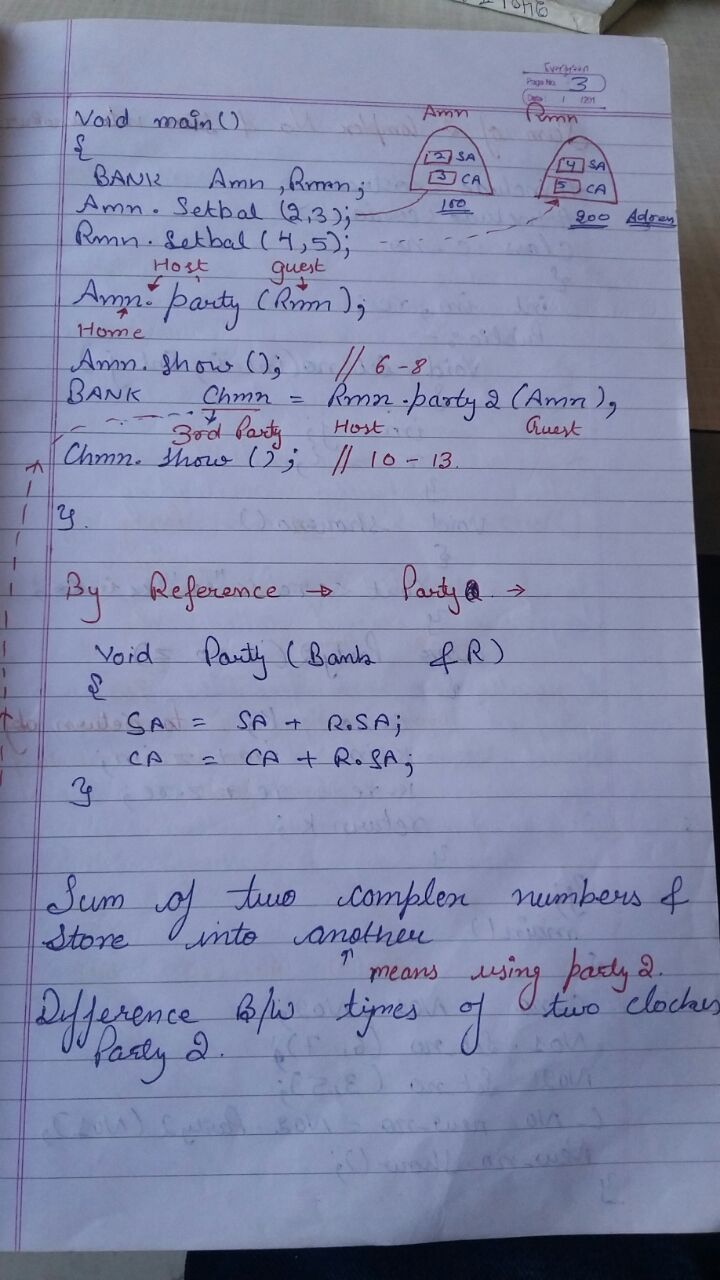 Evergreen
Page No. 3
Date: / /201
Void main()
{
BANK Amn, Rmn;
Amn. Setbal (2,3);
Rmn. Setbal (4,5);
Amn
2 SA
3 CA
100
Rmn
4 SA
5 CA
200
Host guest
Amn. party (Rmn);
Home
Amn. show (); // 6-8
BANK Chmn = Rmn.party 2 (Amn);
3rd Party Host Guest
Chmn. show (); // 10-13.
}.
By Reference → Party →
Void Party (Bank & R)
{
SA = SA + R.SA;
CA = CA + R.SA;
}
Sum of two complex numbers &
store into another
↑ means using party 2.
Difference B/W times of two clockes
Party 2.